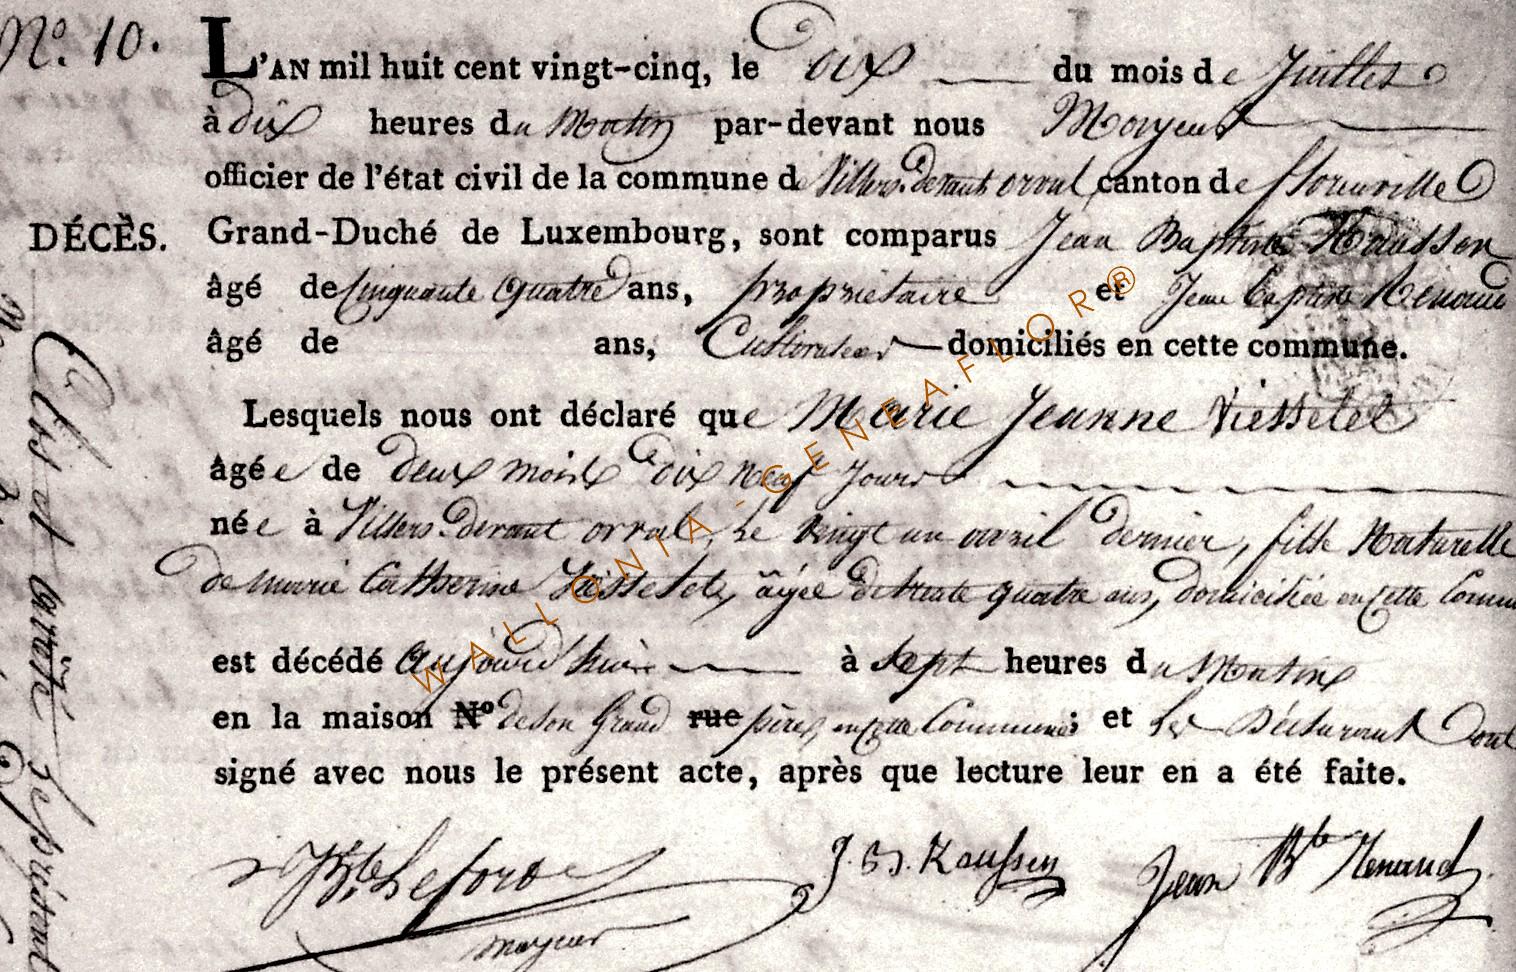 N.o 10.
L'AN mil huit cent vingt-cinq, le Dix du mois de Juillet
à dix heures du Matin par-devant nous Mayeur
officier de l'état civil de la commune de Villers-devant orval canton de florenville
DÉCÈS.
Grand-Duché de Luxembourg, sont comparus Jean Baptiste
âgé de Cinquante Quatre ans, propriétaire et Jean baptiste
âgé de ans, Cultivateur domiciliés en cette commune.
Lesquels nous ont déclaré que Marie Jeanne
âgée de deux mois dix neuf jours
née à Villers-devant orval, le vingt un avril dernier, fille Naturelle
de marie Catherine âgée de trente quatre ans, domiciliée en Cette Commu
est décédé aujourd'hui à sept heures du Matin
en la maison No de son Grand rue père, en cette Commune; et les Déclarant ont
signé avec nous le présent acte, après que lecture leur en a été faite.
J. B. Kaussen
Jean Bte
mayeur
WALLONIA - GENEAFLOR®